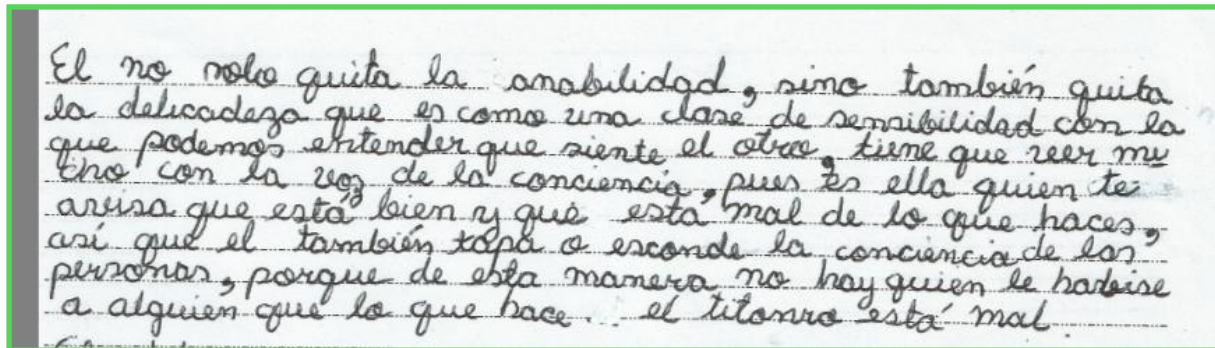 El no solo quita la amabilidad, sino también quita
la delicadeza que es como una clase de sensibilidad con la
que podemos entender que siente el otro, tiene que reer mu
cho con la voz de la conciencia, pues es ella quien te
avisa que está bien y qué está mal de lo que haces,
así que el también tapa o esconde la conciencia de las
personas, porque de esta manera no hay quien le habise
a alguién que lo que hace... el titanro está mal.